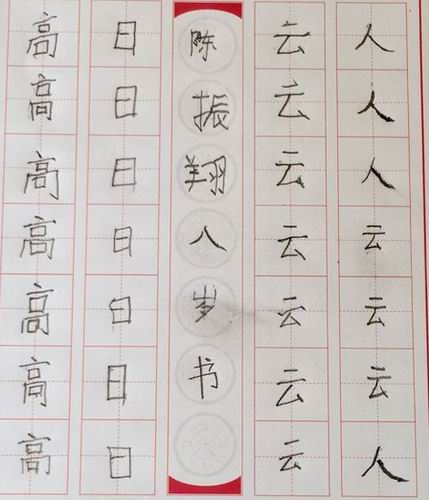 人人人云云云人
云云云云云云云
陈振翔八岁书
日日日日日日日
高高高高高高高